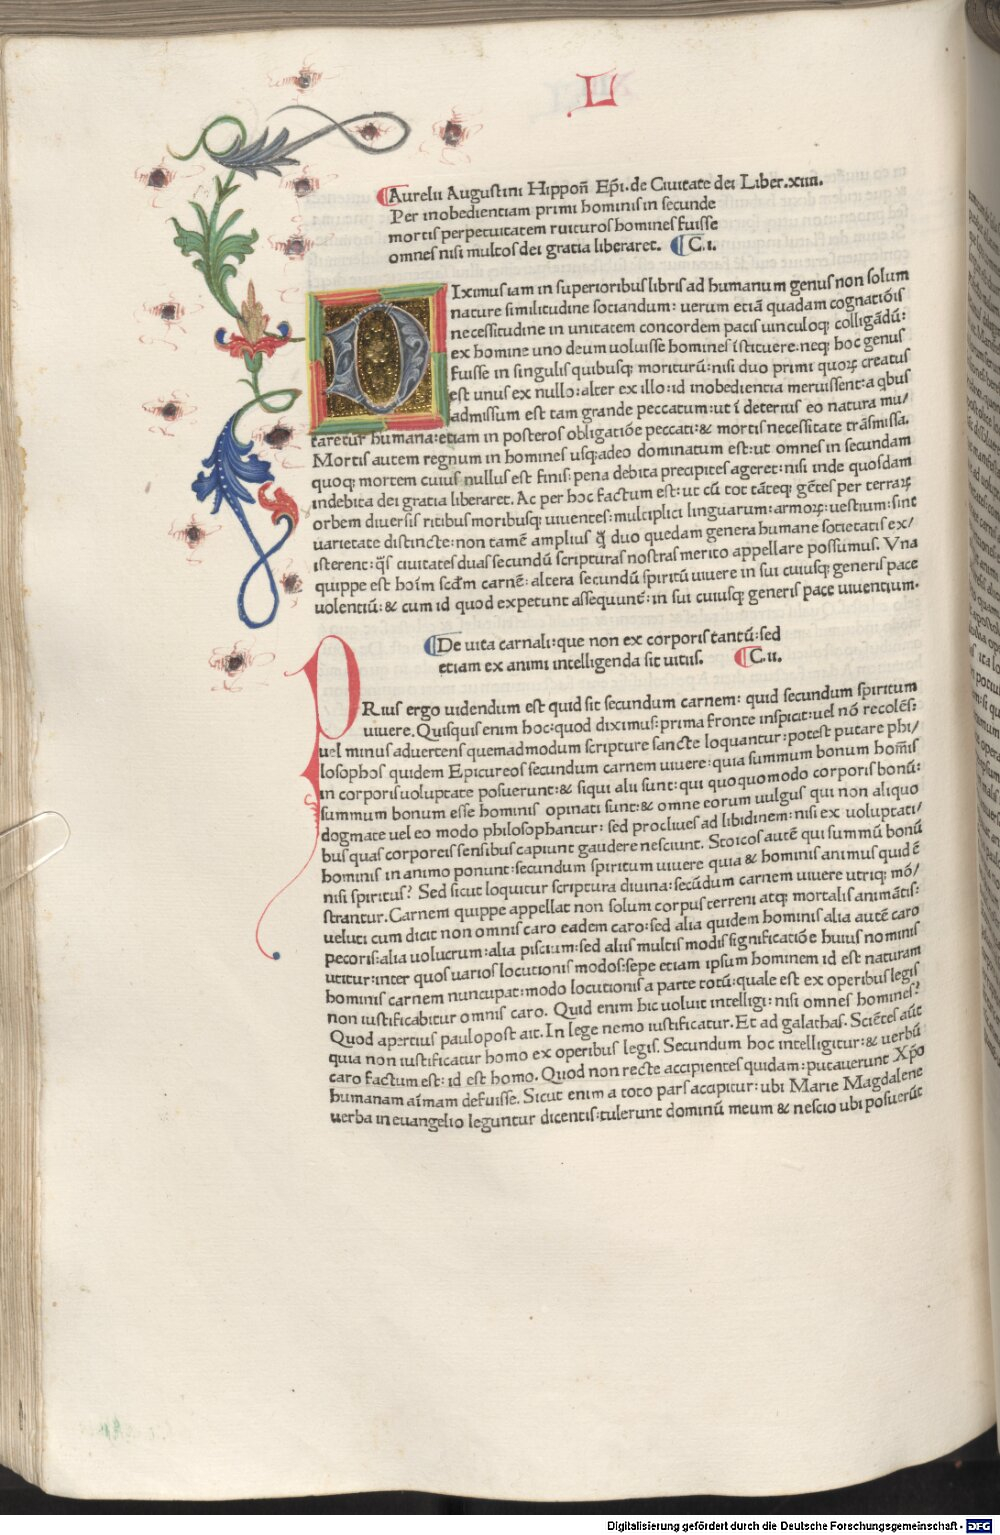 L
Aurelii Augustini Hippoñ Ep̄i. de Ciuitate dei Liber. xiiii.
Per inobedientiam primi hominis in secunde
mortis perpetuitatem ruituros homines fuisse
omnes nisi multos dei gratia liberaret. C. i.
DIximus iam in superioribus libris ad humanum genus non solum
nature similitudine sociandum: uerum etiā quadam cognatiōis
necessitudine in unitatem concordem pacis uinculoq; colligādū:
ex homine uno deum uoluisse homines īstituere. neq; hoc genus
fuisse in singulis quibusq; moriturū: nisi duo primi quoꝝ creatus
est unus ex nullo: alter ex illo: id inobedientia meruissent: a qbus
admissum est tam grande peccatum: ut ī deterius eo natura mu/
taretur humana: etiam in posteros obligatiōe peccati: & mortis necessitate trāsmissa.
Mortis autem regnum in homines usq; adeo dominatum est: ut omnes in secundam
quoq; mortem cuius nullus est finis: pena debita precipites ageret: nisi inde quosdam
indebita dei gratia liberaret. Ac per hoc factum est: ut cū tot tāteq; gētes per terraꝝ
orbem diuersis ritibus moribusq; uiuentes: multiplici linguarum: armoꝝ: uestium: sint
uarietate distincte: non tamē amplius ꝗ̄ duo quedam genera humane societatis ex/
isterent: q̄s ciuitates duas secundū scripturas nostras merito appellare possumus. Vna
quippe est hoīm scd̄m carnē: altera secundū spiritū uiuere in sui cuiusq; generis pace
uolentiū: & cum id quod expetunt assequunt̄: in sui cuiusq; generis pace uiuentium.
De uita carnali: que non ex corporis tantū: sed
etiam ex animi intelligenda sit uitiis. C. ii.
PRius ergo uidendum est quid sit secundum carnem: quid secundum spiritum
uiuere. Quisquis enim hoc: quod diximus: prima fronte inspicit: uel nō recolēs:
uel minus aduertens quemadmodum scripture sancte loquantur: potest putare phi/
losophos quidem Epicureos secundum carnem uiuere: quia summum bonum hom̄is
in corporis uoluptate posuerunt: & siqui alii sunt: qui quoquomodo corporis bonū:
summum bonum esse hominis opinati sunt: & omne eorum uulgus qui non aliquo
dogmate uel eo modo philosophantur: sed procliues ad libidinem: nisi ex uoluptati/
bus quas corporeis sensibus capiunt gaudere nesciunt. Stoicos autē qui summū bonū
hominis in animo ponunt: secundum spiritum uiuere quia & hominis animus quid ē
nisi spiritus? Sed sicut loquitur scriptura diuina: secūdum carnem uiuere utriq; mō/
strantur. Carnem quippe appellat non solum corpus terreni atq; mortalis animātis:
ueluti cum dicit non omnis caro eadem caro: sed alia quidem hominis alia autē caro
pecoris: alia uolucrum: alia piscium: sed aliis multis modis significatiōe huius nominis
utitur: inter quos uarios locutionis modos: sepe etiam ipsum hominem id est naturam
hominis carnem nuncupat: modo locutionis a parte totū: quale est ex operibus legis
non iustificabitur omnis caro. Quid enim hic uoluit intelligi: nisi omnes homines?
Quod apertius paulopost ait. In lege nemo iustificatur. Et ad galathas. Sciētes aūt
quia non iustificatur homo ex operibus legis. Secundum hoc intelligitur: & uerbū
caro factum est: id est homo. Quod non recte accipientes quidam: putauerunt Xp̄o
humanam aīmam defuisse. Sicut enim a toto pars accipitur: ubi Marie Magdalene
uerba in euangelio leguntur dicentis: tulerunt dominū meum & nescio ubi posuerūt
Digitalisierung gefördert durch die Deutsche Forschungsgemeinschaft - DFG